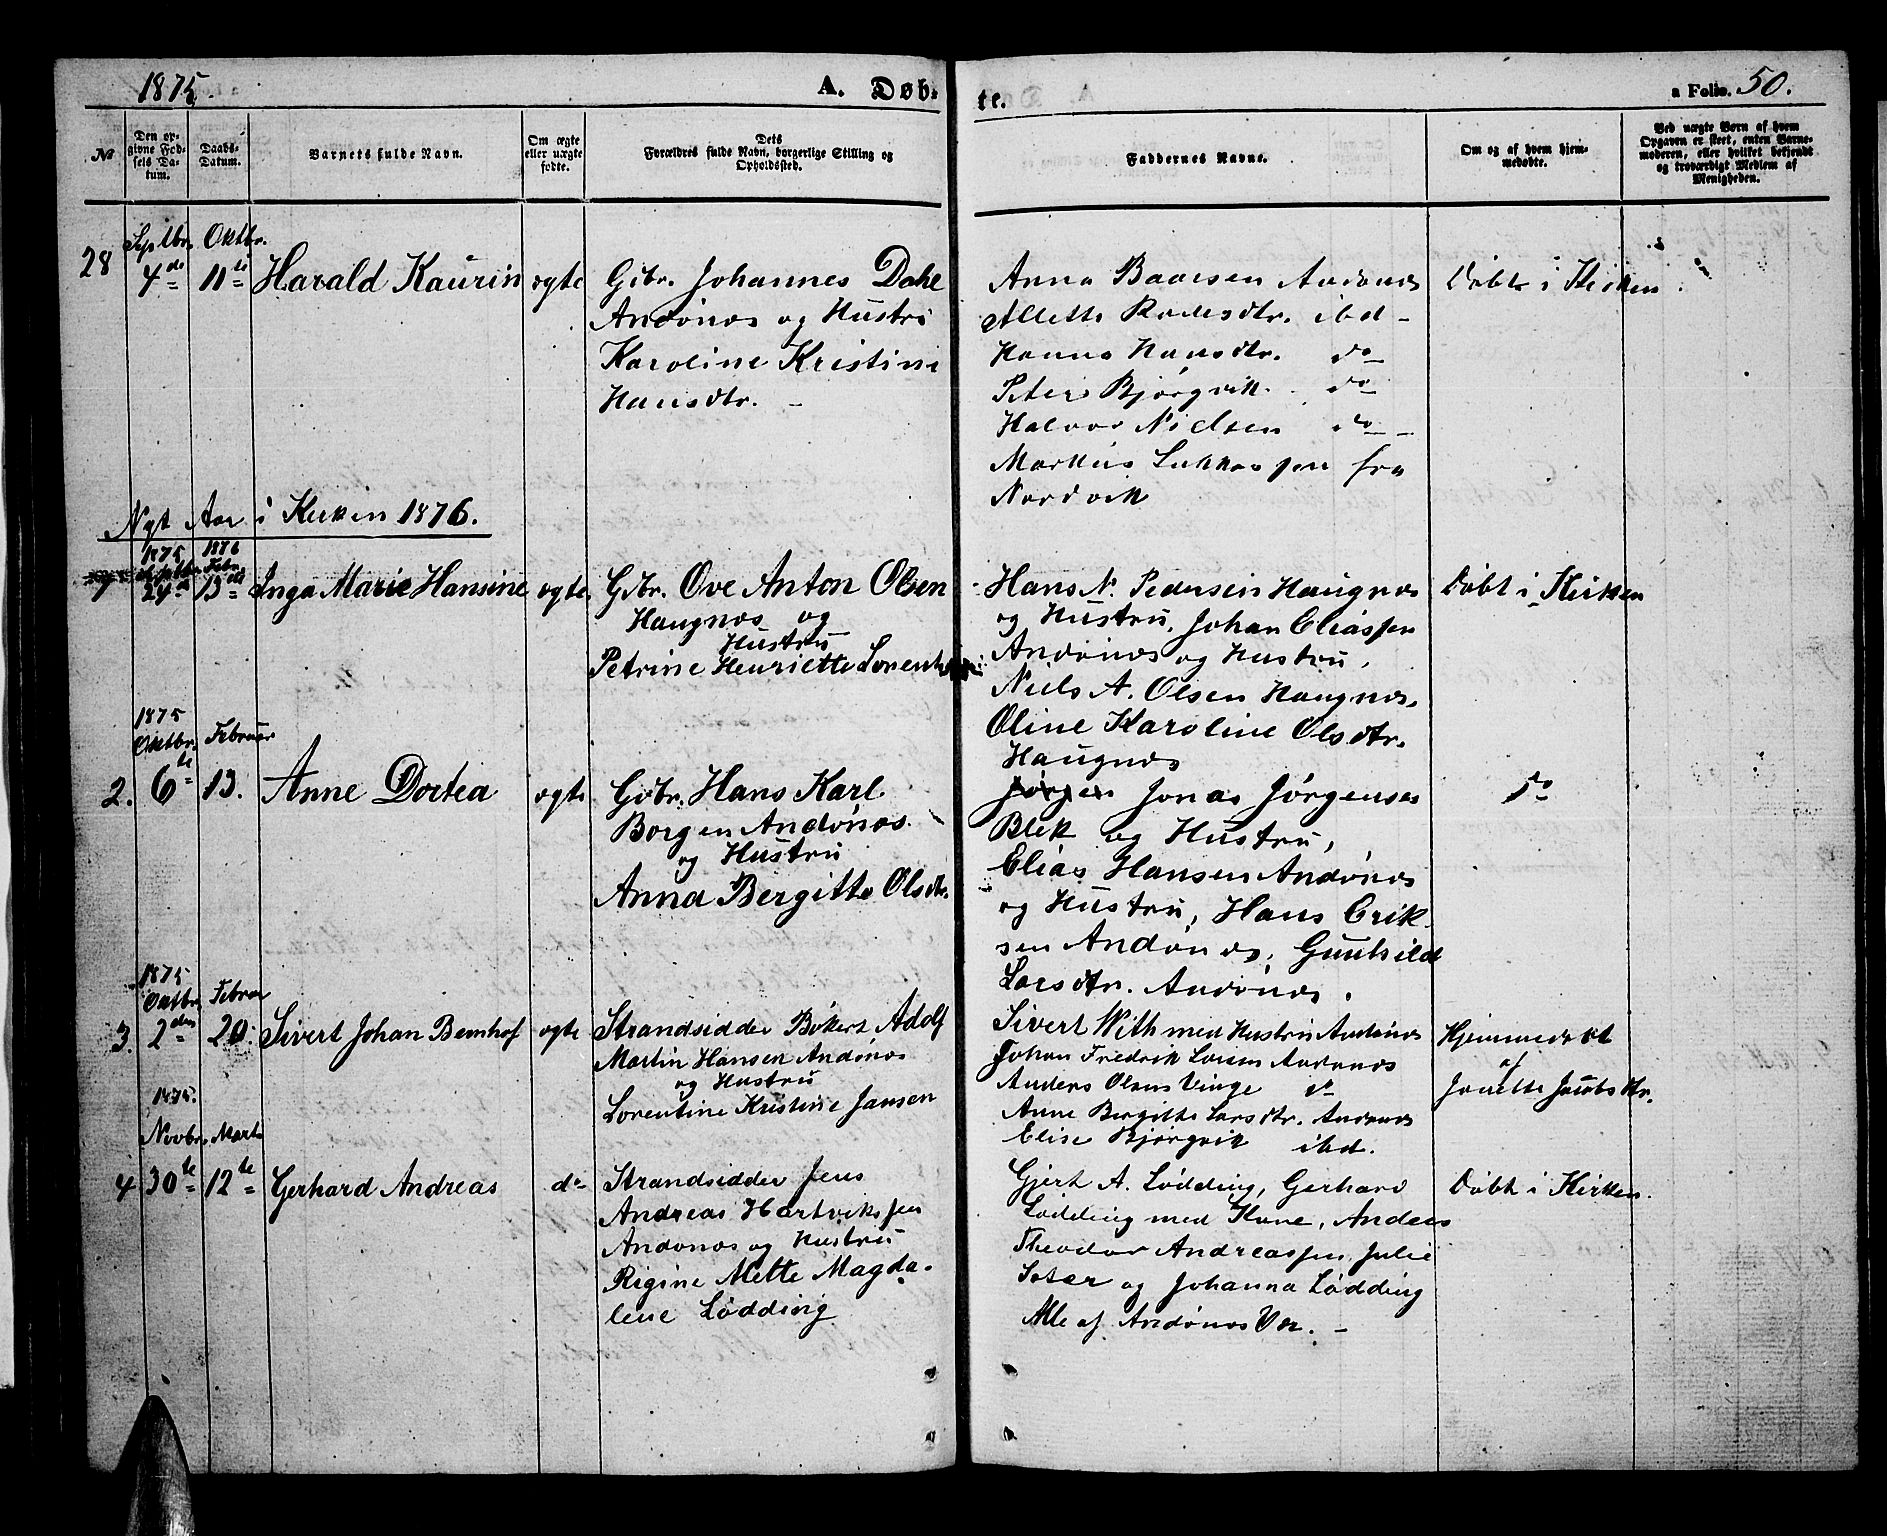 1875.
A. Døb-
te.
a Folio. 50.
№
Den opgivne Fødsels Datum.
Daabs-Datum.
Barnets fulde Navn.
Om ægte eller uægte fødte.
Dets Forældres fulde Navn, borgerlige Stilling og Opholdssted.
Faddernes Navne.
Om og af hvem hjemmedøbte.
Ved uægte Børn af hvem Opgaven er skeet, enten Barnemoderen, eller hvilket bekjendt og troværdigt Medlem af Menigheden.
28
Septbr. 4de
Oktbr. 11te
Harald Kaurin
ægte
Gdbr. Johannes Dahl
Andønæs og Hustru
Karoline Kristine
Hansdtr. -
Anna Baarsen Andønæs
Allette ibd -
Hanna Hansdtr. do
Peter Bjørgvik. do
Halvor Nielsen do -
Markus Lukkassen fra
Nordvik
Døbt i Kirken
Nyt Aar i Kirken 1876.
1
1875
24de
1876
Febr. 13de
Inga Marie Hansine
ægte
Gdbr. Ove Anton Olsen
Haugnæs og
Hustru
Petrine Henriette
Hans N. Pedersen Haugnæs
og Hustru, Johan Eliassen
Andønæs og Hustru,
Niels A. Olsen Haugnæs,
Oline Karoline Olsdtr.
Haugnæs
Døbt i Kirken
2.
1875
Oktbr. 6te
Februar 13.
Anne Dortea
ægte
Gdbr. Hans Karl
Borgen Andønæs
og Hustru
Anna Bergitte Olsdtr.
Jørgen Jonas Jørgensen
Blek og Hustru,
Elias Hansen Andønæs
og Hustru, Hans Erik-
sen Andønæs, Gunhild
Larsdtr. Andønæs.
do
3.
1875
Oktbr. 2den
Februar 20.
Sivert Johan Bernhof
ægte
Strandsidder Bokert Adolf
Martin Hansen Andønæs
og Hustru
Lorentine Kristine Jansen
Sivert With med Hustru Andønæs
Johan Fredrik Larsen Andønæs
Anders Olsen Vinge do
Anne Bergitte Larsdtr. Andønæs
Elise Bjørgvik ibd.
Hjemmedøbt
af
Janette Jacobsdtr.
4
1875.
Novbr. 30te
Marts 12te
Gerhard Andreas
do
Strandsidder Jens
Andreas Hartvikssen
Andønæs og Hustru
Rigine Mette Magda-
lene Lødding
Gjert A. Lødding, Gerhard
Lødding med Kone, Anders
Theodor Andreassen, Julie
og Johanna Lødding
Alle af Andønæs Vær. -
Døbt i Kirken.